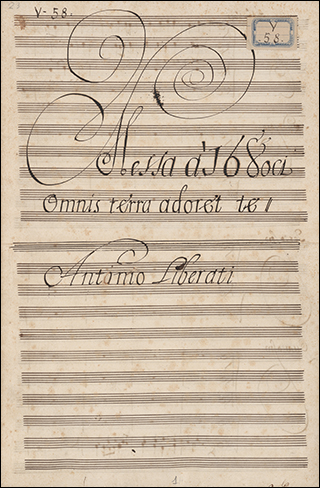 V-58.
V
58.
Messa a 16 Voci
Omnis terra adoret te
Antonio Liberati
1